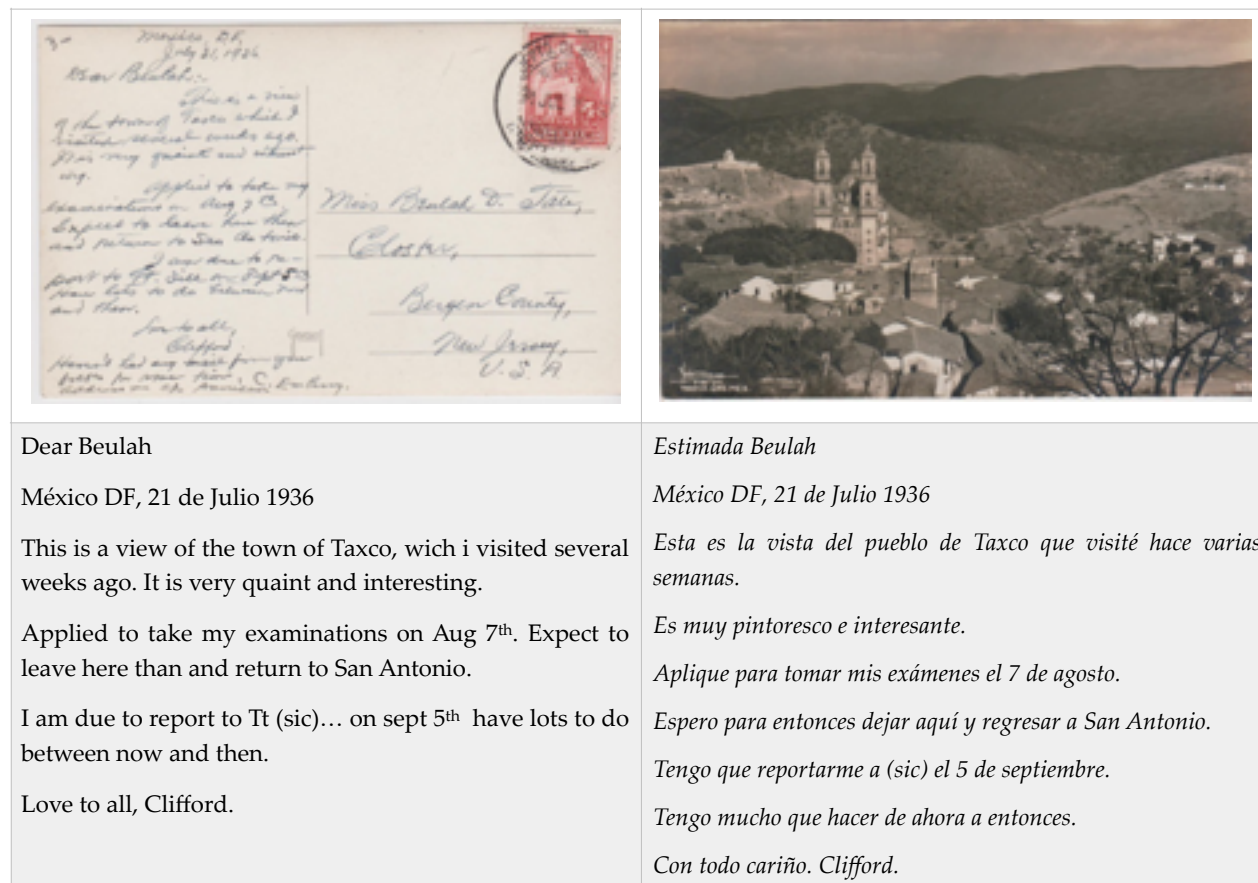 Mexico, D.F.
July 21, 1936
Dear Beulah:-
This is a view
of the town of Taxco which I
visited several weeks ago.
It is very quaint and interest-
ing.
Applied to take my
examinations on Aug 7
Expect to leave here then
and return to San Antonio.
I am due to re-
port to Ft. Sill on Sept 5
have lots to do between now
and then.
Love to all,
Clifford
Haven't had any mail from you
for some time.
American Embassy.
Miss Beulah D. Tate,
Closter,
Bergen County,
New Jersey,
U.S.A
Dear Beulah
México DF, 21 de Julio 1936
This is a view of the town of Taxco, wich i visited several
weeks ago. It is very quaint and interesting.
Applied to take my examinations on Aug 7th. Expect to
leave here than and return to San Antonio.
I am due to report to Tt (sic)… on sept 5th have lots to do
between now and then.
Love to all, Clifford.
Estimada Beulah
México DF, 21 de Julio 1936
Esta es la vista del pueblo de Taxco que visité hace varias
semanas.
Es muy pintoresco e interesante.
Aplique para tomar mis exámenes el 7 de agosto.
Espero para entonces dejar aquí y regresar a San Antonio.
Tengo que reportarme a (sic) el 5 de septiembre.
Tengo mucho que hacer de ahora a entonces.
Con todo cariño. Clifford.